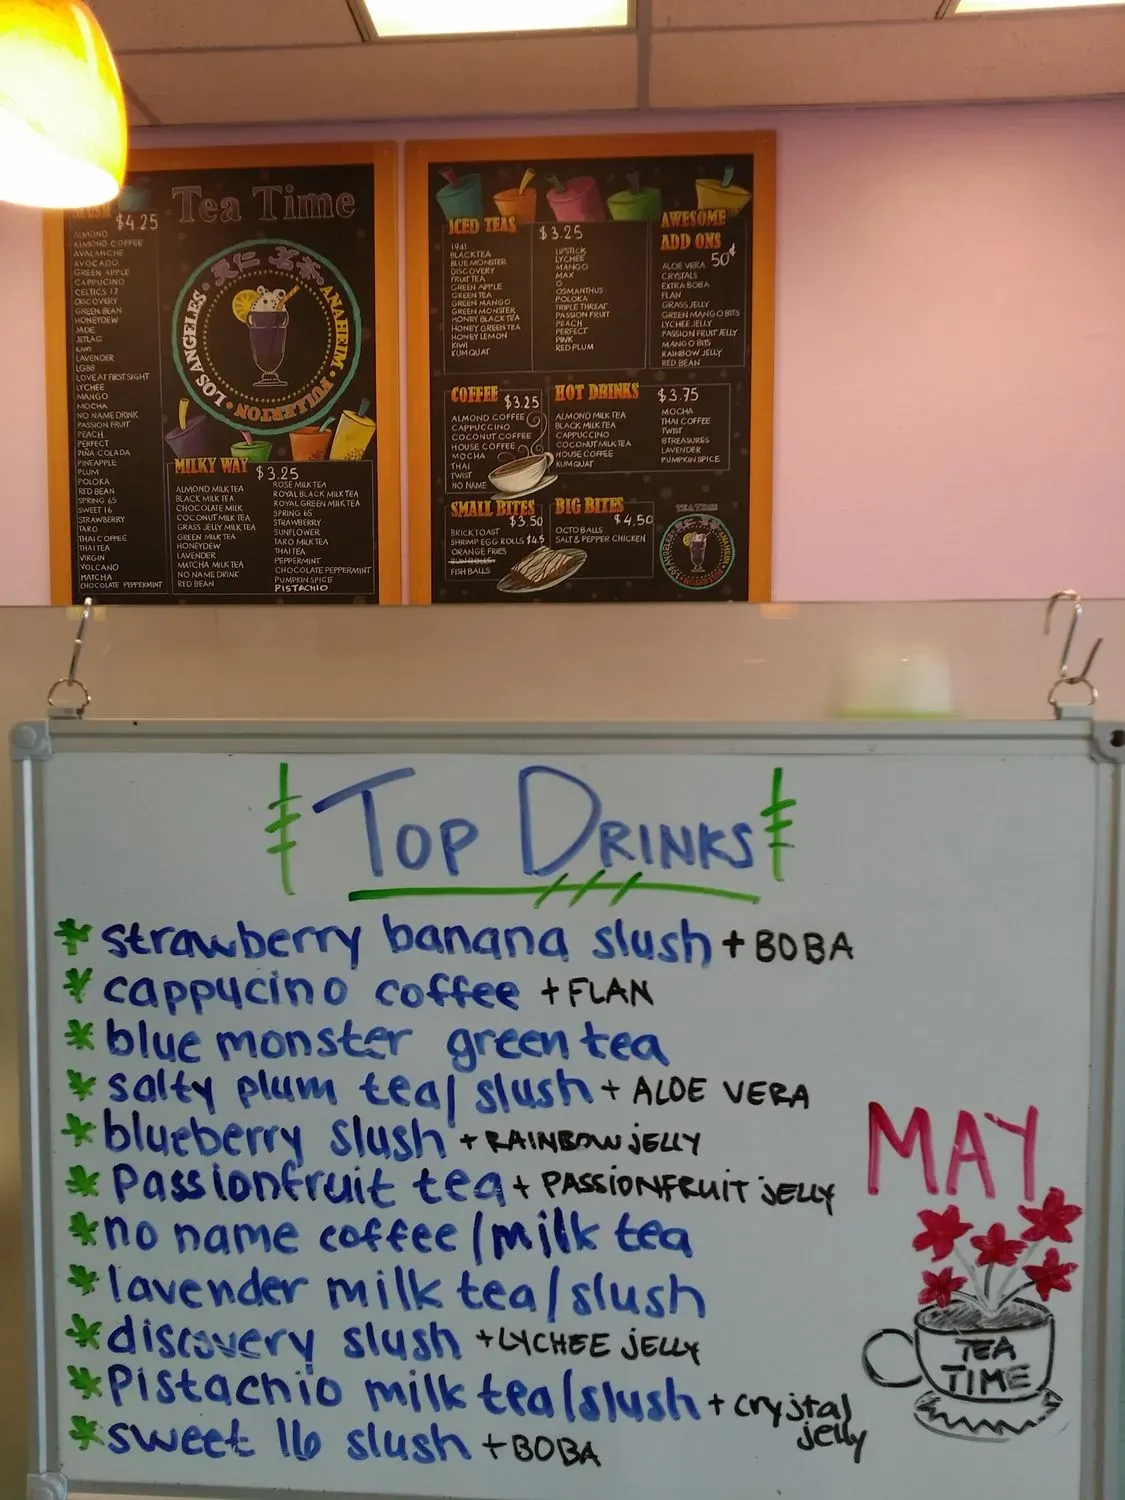 Tea Time
$4.25
ALMOND
ALMOND COFFEE
AVALANCHE
AVOCADO
GREEN APPLE
CAPPUCINO
CELTICS 17
DISCOVERY
GREEN BEAN
HONEYDEW
JADE
JETLAG
KIWI
LAVENDER
LG88
LOVE AT FIRST SIGHT
LYCHEE
MANGO
MOCHA
NO NAME DRINK
PASSION FRUIT
PEACH
PERFECT
PIÑA COLADA
PINEAPPLE
PLUM
POLOKA
RED BEAN
SPRING 65
SWEET 16
STRAWBERRY
TARO
THAI COFFEE
THAI TEA
VIRGIN
VOLCANO
MATCHA
CHOCOLATE PEPPERMINT
LOS ANGELES • ANAHEIM • FULLERTON
MILKY WAY $3.25
ALMOND MILK TEA
BLACK MILK TEA
CHOCOLATE MILK
COCONUT MILK TEA
GRASS JELLY MILK TEA
GREEN MILK TEA
HONEYDEW
LAVENDER
MATCHA MILK TEA
NO NAME DRINK
RED BEAN
ROSE MILK TEA
ROYAL BLACK MILK TEA
ROYAL GREEN MILK TEA
SPRING 65
STRAWBERRY
SUNFLOWER
TARO MILK TEA
THAI TEA
PEPPERMINT
CHOCOLATE PEPPERMINT
PUMPKIN SPICE
PISTACHIO
ICED TEAS $3.25
1941
BLACK TEA
BLUE MONSTER
DISCOVERY
FRUIT TEA
GREEN APPLE
GREEN TEA
GREEN MANGO
GREEN MONSTER
HONEY BLACK TEA
HONEY GREEN TEA
HONEY LEMON
KIWI
KUMQUAT
LIPSTICK
LYCHEE
MANGO
MAX
O
OSMANTHUS
POLOKA
TRIPLE THREAT
PASSION FRUIT
PEACH
PERFECT
PINK
RED PLUM
AWESOME
ADD ONS
50¢
ALOE VERA
CRYSTALS
EXTRA BOBA
FLAN
GRASS JELLY
GREEN MANGO BITS
LYCHEE JELLY
PASSION FRUIT JELLY
MANGO BITS
RAINBOW JELLY
RED BEAN
COFFEE $3.25
ALMOND COFFEE
CAPPUCCINO
COCONUT COFFEE
HOUSE COFFEE
MOCHA
THAI
TWIST
NO NAME
HOT DRINKS $3.75
ALMOND MILK TEA
BLACK MILK TEA
CAPPUCCINO
COCONUT MILK TEA
HOUSE COFFEE
KUMQUAT
MOCHA
THAI COFFEE
TWIST
8 TREASURES
LAVENDER
PUMPKIN SPICE
SMALL BITES
$3.50
BRICK TOAST
SHRIMP EGG ROLLS $4.5
ORANGE FRIES
FISH BALLS
BIG BITES
$4.50
OCTO BALLS
SALT & PEPPER CHICKEN
TEA TIME
TOP DRINKS
strawberry banana slush + BOBA
cappucino coffee + FLAN
blue monster green tea
salty plum tea/slush + ALOE VERA
blueberry slush + RAINBOW JELLY
Passionfruit tea + PASSIONFRUIT JELLY
no name coffee/milk tea
lavender milk tea/slush
discovery slush + LYCHEE JELLY
Pistachio milk tea/slush + crystal
jelly
sweet 16 slush + BOBA
MAY
TEA
TIME